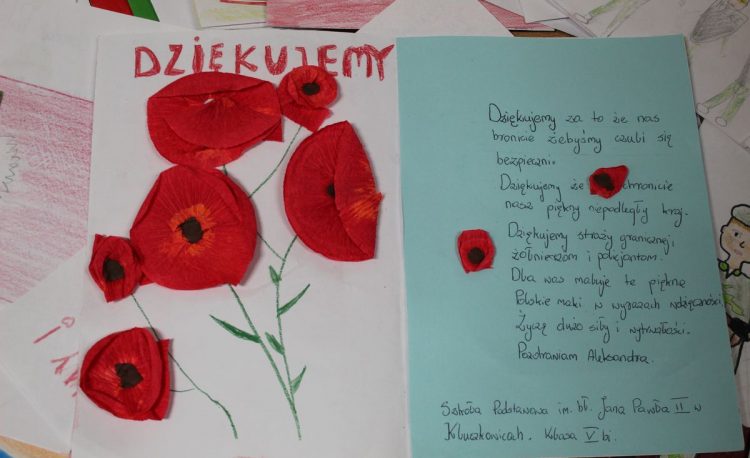 DZIĘKUJEMY
Dziękujemy za to że nas
bronicie żebyśmy czuli się
bezpieczni.
Dziękujemy że chronicie
nasz piękny niepodległy kraj.
Dziękujemy straży granicznej i
żołnierzom i policjantom.
Dla was maluje te piękne
Polskie maki w wyrazach wdzięczności
Życzę dużo siły i wytrwałości.
Pozdrawiam Aleksandra.
Szkoła Podstawowa im. bł. Jana Pawła II w
Kluczkowicach. Klasa V bi.